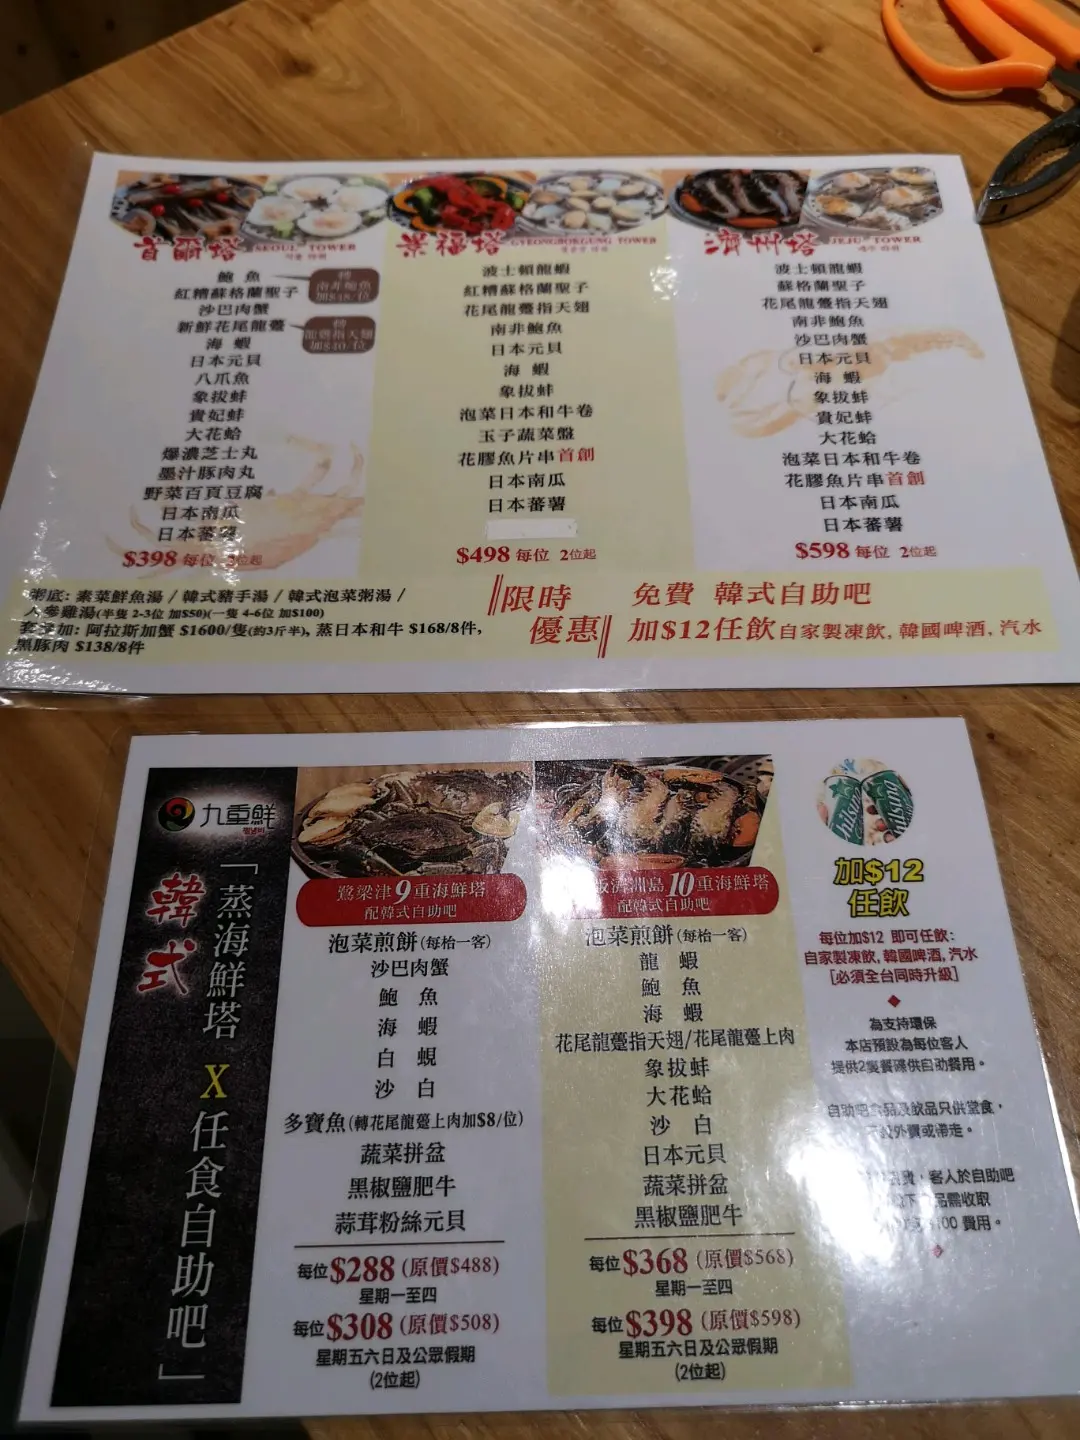 首爾塔 SEOUL TOWER
鮑魚
轉
南非鮑魚
加$48/位
紅糟蘇格蘭聖子
沙巴肉蟹
新鮮花尾龍躉
轉
龍躉指天翅
加$40/位
海蝦
日本元貝
八爪魚
象拔蚌
貴妃蚌
大花蛤
爆濃芝士丸
墨汁豚肉丸
野菜百頁豆腐
日本南瓜
日本蕃薯
$398 每位 2位起
景福塔 GYEONGBOKGUNG TOWER
波士頓龍蝦
紅糟蘇格蘭聖子
花尾龍躉指天翅
南非鮑魚
日本元貝
海蝦
象拔蚌
泡菜日本和牛卷
玉子蔬菜盤
花膠魚片串首創
日本南瓜
日本蕃薯
$498 每位 2位起
濟州塔 JEJU TOWER
波士頓龍蝦
蘇格蘭聖子
花尾龍躉指天翅
南非鮑魚
沙巴肉蟹
日本元貝
海蝦
象拔蚌
貴妃蚌
大花蛤
泡菜日本和牛卷
花膠魚片串首創
日本南瓜
日本蕃薯
$598 每位 2位起
粥底: 素菜鮮魚湯 / 韓式豬手湯 / 韓式泡菜粥湯 /
人參雞湯(半隻 2-3位 加$50)(一隻 4-6位 加$100)
套餐加: 阿拉斯加蟹 $1600/隻(約3斤半), 蒸日本和牛 $168/8件,
黑豚肉 $138/8件
限時
優惠
免費 韓式自助吧
加$12任飲自家製凍飲, 韓國啤酒, 汽水
九重鮮
韓式
「蒸海鮮塔 X 任食自助吧」
鷺梁津9重海鮮塔
配韓式自助吧
泡菜煎餅(每枱一客)
沙巴肉蟹
鮑魚
海蝦
白蜆
沙白
多寶魚(轉花尾龍躉上肉加$8/位)
蔬菜拼盆
黑椒鹽肥牛
蒜茸粉絲元貝
每位$288(原價$488)
星期一至四
每位$308(原價$508)
星期五六日及公眾假期
(2位起)
版濟州島10重海鮮塔
配韓式自助吧
泡菜煎餅(每枱一客)
龍蝦
鮑魚
海蝦
花尾龍躉指天翅/花尾龍躉上肉
象拔蚌
大花蛤
沙白
日本元貝
蔬菜拼盆
黑椒鹽肥牛
每位$368(原價$568)
星期一至四
每位$398(原價$598)
星期五六日及公眾假期
(2位起)
加$12
任飲
每位加$12 即可任飲:
自家製凍飲, 韓國啤酒, 汽水
[必須全台同時升級]
為支持環保
本店預設為每位客人
提供2隻餐碟供自助餐用。
自助吧食品及飲品只供堂食,
外賣或帶走。
客人於自助吧
品需收取
00 費用。